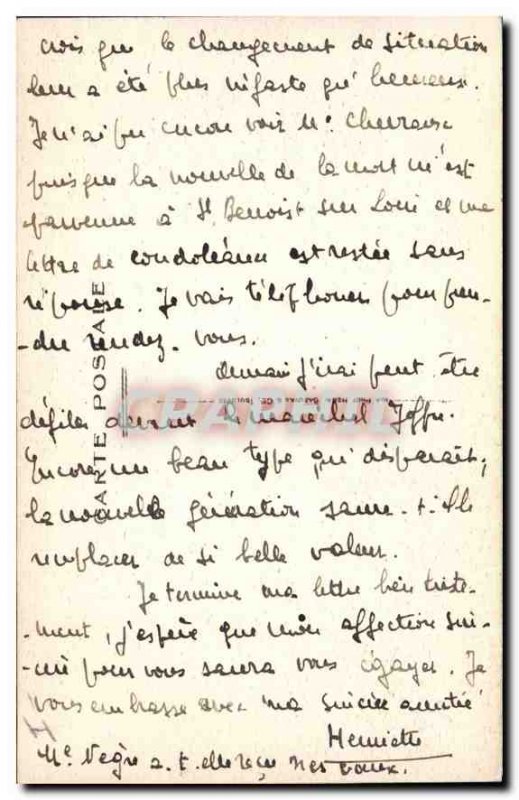 crois que le changement de situation
leur a été plus néfaste qu'heureux.
Je n'ai pu encore voir Mr. Chevreuse
puisque la nouvelle de la mort m'est
parvenue à St. Benoist sur Loire et ma
lettre de condoléances est restée sans
réponse. Je vais téléphoner pour pren-
-dre rendez-vous.
demain j'irai peut être
défiler devant le maréchal Joffre.
Encore un beau type qui disparaît,
la nouvelle génération saura-t-elle
remplacer de si belle valeur.
Je termine ma lettre bien triste-
-ment, j'espère que mon affection sin-
-cère pour vous saura vous égayer. Je
vous embrasse avec ma sincère amitié
Henriette
Me Vegre a-t-elle reçu mes vœux.
CARTE POSTALE